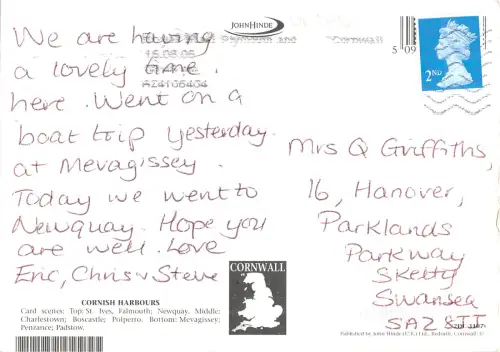 JOHN HINDE
We are having
a lovely time
here. Went on a
boat trip yesterday.
at Mevagissey.
Today we went to
Newquay. Hope you
are well. Love
Eric, Chris & Steve
Plymouth and Cornwall
15.08.06
5 09
2ND
Mrs Q Griffiths,
16, Hanover,
Parklands
Parkway
Sketty
Swansea
SA2 8JJ
CORNWALL
CORNISH HARBOURS
Card scenes: Top: St. Ives, Falmouth; Newquay. Middle:
Charlestown; Boscastle; Polperro. Bottom: Mevagissey;
Penzance; Padstow.
Published by John Hinde (U.K.) Ltd., Redruth, Cornwall.